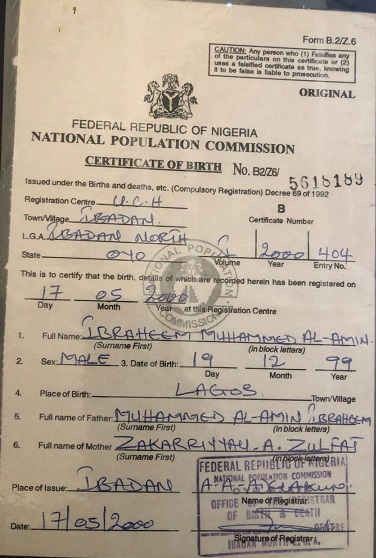 Form B.2/Z.6
CAUTION: Any person who (1) Falsifies any
of the particulars on this certificate or (2)
uses a falsified certificate as true, knowing
it to be false is liable to prosecution.
ORIGINAL
FEDERAL REPUBLIC OF NIGERIA
NATIONAL POPULATION COMMISSION
CERTIFICATE OF BIRTH No. B2/Z6/ 5618189
Issued under the Births and deaths, etc. (Compulsory Registration) Decree 69 of 1992
Registration Centre U.C.H B
Town/Village IBADAN Certificate Number
L.G.A. IBADAN NORTH 2000 404
State OYO Volume Year Entry No.
This is to certify that the birth, details of which are recorded herein has been registered on
17 05 2000
Day Month Year at this Registration Centre
1. Full Name: IBRAHEEM MUHAMMED AL-AMIN
(Surname First) (in block letters)
2. Sex: MALE 3. Date of Birth: 19 12 99
Day Month Year
4. Place of Birth: LAGOS Town/Village
5. Full name of Father: MUHAMMED AL-AMIN IBRAHEEM
(Surname First) (in block letters)
6. Full name of Mother ZAKARRIYYAH .A. ZULFAT
(Surname First) (in block letters)
FEDERAL REPUBLIC OF NIGERIA
NATIONAL POPULATION COMMISSION
Place of Issue: IBADAN
Name of Registrar
OFFICE REGISTRAR
OF BIRTH & DEATH
Date: 17/05/2000 CENTRE
Signature of Registrar
IBADAN NORTH